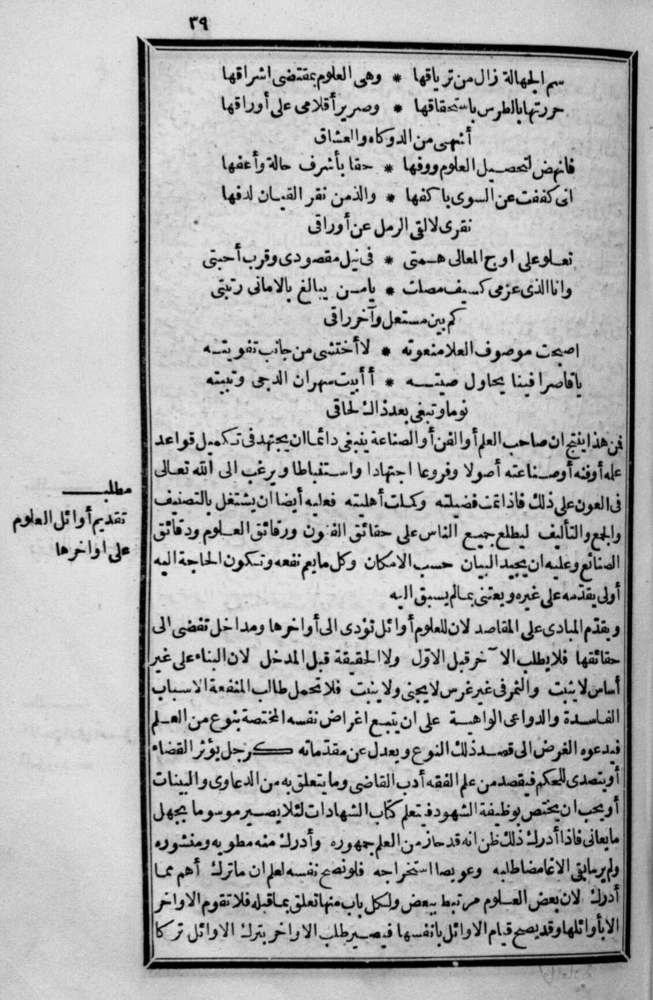 ٣٩
سم الجهالة زال من ترياقها * وهى العلوم بمقتضى اشراقها
حررتها بالطرس باستحقاقها * وصرير أقلامى على أوراقها
أشهى من الدوكاه والعشاق
فانهض لتحصيل العلوم ووفها * حقا بأشرف حالة وأعفها
انى كففت عن السوى باكفها * والذ من نقر القيان لدفها
نقرى لالقى الرمل عن أوراقى
تعلو على اوج المعالى همتى * فى نيل مقصودى وقرب أحبتى
وانا الذى عزمى كسيف مصلت * يا من يبالغ بالامانى رتبتى
كم بين مستعل وآخر راقى
اصبحت موصوف العلا منعوته * لا أختشى من جانب تفويته
يا قاصرا فينا يحاول صيته * أأبيت سهران الدجى وتبيته
نوما وتبغى بعد ذاك لحاقى
فمن هذا ينتج ان صاحب العلم أو الفن أو الصناعة ينبغى دائما ان يجتهد فى تكميل قواعد
علمه أو فنه أو صناعته أصولا وفروعا اجتهادا واستنباطا ويرغب الى الله تعالى
فى العون على ذلك فاذا تمت فضيلته وكملت أهليته فعليه أيضا ان يشتغل بالتصنيف
والجمع والتأليف ليطلع جميع الناس على حقائق الفنون ورقائق العلوم ودقائق
الصنائع وعليه ان يجيد البيان حسب الامكان وكل ما يعم نفعه وتكون الحاجة اليه
أولى يقدمه على غيره ويعتنى بما لم يسبق اليه
مطلب
تقديم أوائل العلوم
على اواخرها
ويقدم المبادى على المقاصد لان للعلوم أوائل تؤدى الى أواخرها ومداخل تفضى الى
حقائقها فلا يطلب الآخر قبل الاول ولا الحقيقة قبل المدخل لان البناء على غير
أساس لا يثبت والثمر فى غير غرس لا يجنى ولا ينبت فلا تحمل طالب المنفعة الاسباب
الفاسدة والدواعى الواهية على ان يتبع اغراض نفسه المختصة بنوع من العلم
فيدعوه الغرض الى قصد ذلك النوع ويعدل عن مقدماته كرجل يؤثر القضاء
أو يتصدى للحكم فيقصد من علم الفقه أدب القاضى وما يتعلق به من الدعاوى والبينات
أو يحب ان يختص بوظيفة الشهود فيتعلم كتاب الشهادات لئلا يصير موسوما بجهل
ما يعانى فاذا أدرك ذلك ظن انه قد حاز من العلم جمهوره وأدرك منه مطويه ومنشوره
ولم ير ما بقى الا غامضا طلبه وعويصا استخراجه فلو نصح نفسه لعلم ان ما ترك أهم مما
أدرك لان بعض العلوم مرتبط ببعض ولكل باب منها تعلق بما قبله فلا تقوم الاواخر
الا بأوائلها وقد يصح قيام الاوائل بانفسها فيصير طلب الاواخر بترك الاوائل تركا